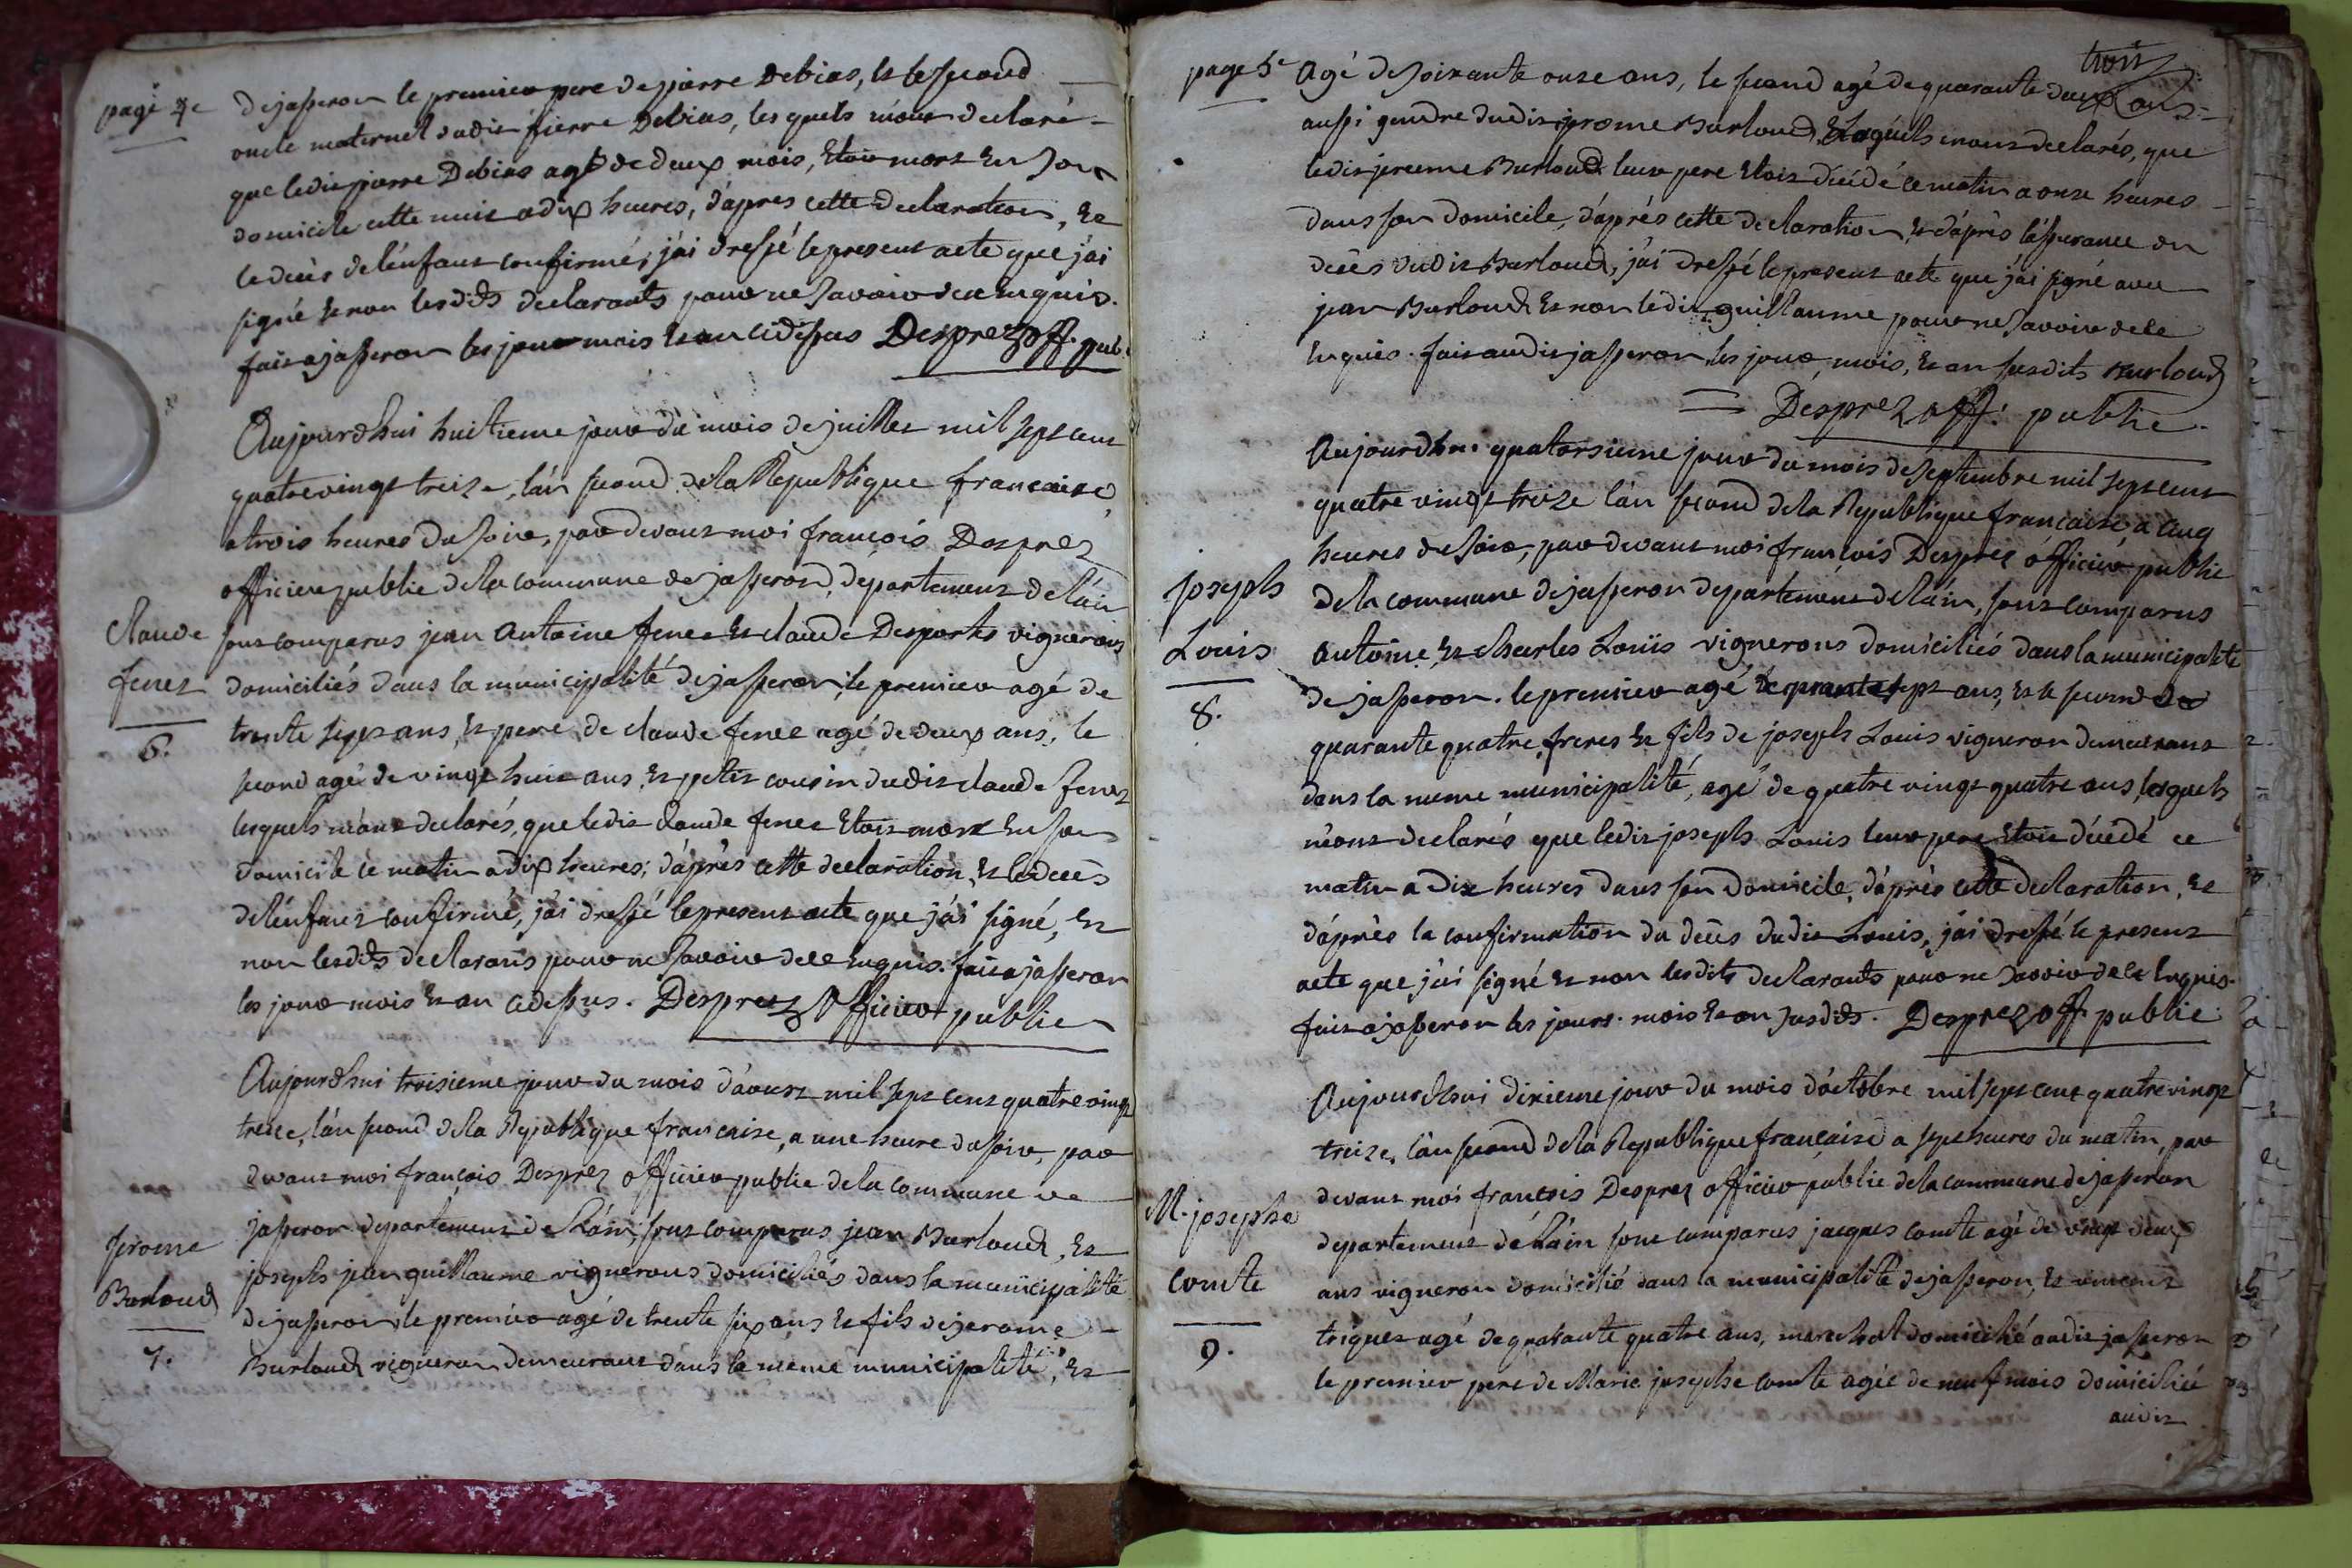 page 4e
dejasseron le premier pere de pierre Debias, et le second
oncle maternel dudit pierre Debias, lesquels m'ont declaré
que ledit pierre Debias agé de deux mois, etoit mort en son
domicile cette nuit a dix heures, d'apres cette declaration, et
le décès de l'enfant confirmé, j'ai dressé le present acte que j'ai
signé et non lesdits declarants pour ne savoir de ce enquis.
fait a jasseron les jour mois et an cidessus Desprez off. pub.
Aujourdhui huitieme jour du mois de juillet mil sept cent
quatrevingt treize, l'an second de la Republique francaise,
a trois heures du soire, par devant moi francois Desprez
officier public de la commune de jasseron, departement de l'ain
Claude
fenet
6.
sont comparus jean Antoine fenet et claude Desportes vignerons
domiciliés dans la municipalité de jasseron, le premier agé de
trente sept ans, et pere de claude fenet agé de deux ans, le
second agé de vingt huit ans, et petit cousin dudit claude fenet
lesquels m'ont declarés, que ledit claude fenet etoit mort en son
domicile ce matin a dix heures; d'après cette declaration, et le décès
de l'enfant confirmé, j'ai dressé le present acte que j'ai signé, et
non lesdits declarans pour ne savoir de ce enquis. fait a jasseron
les jour mois et an cidessus. Desprez Officier public
Aujourdhui troisieme jour du mois d'aoust mil sept cent quatrevingt
treize, l'an second de la Republique francaise, a une heure du soir, par
devant moi francois Desprez officier public de la commune de
jerome
Burloud
7.
jasseron departement de l'Ain, sont comparus jean Burloud, et
joseph jean guillaume vignerons domiciliés dans la municipalité
de jasseron, le premier agé de trente six ans et fils de jerome
Burloud vigneron demeurant dans la meme municipalité, et
trois
page 5e
Agé de soixante onze ans, le second agé de quarante deux ans
aussi gendre dudit jerome Burloud, lesquels m'ont declarés, que
ledit jereme Burloud leur pere etoit décédé ce matin a onze heures
dans son domicile, d'après cette declaration, et d'après l'assurance du
décès dudit Burloud, j'ai dressé le present acte que j'ai signé avec
jean Burloud et non ledit guillaume pour ne savoir de ce
enquis. fait audit jasseron les jour, mois, et an susdits Burloud
Desprez off. public.
Aujourdhui quatorsieme jour du mois de septembre mil sept cent
quatre vingt treize l'an second de la Republique francaise, a cinq
heures de soir, par devant moi francois Desprez officier public
joseph
Louis
8.
de la commune de jasseron departement de l'ain, sont comparus
Antoine et charles Louis vignerons domiciliés dans la municipalité
de jasseron. le premier agé de sept ans, et le second de
quarante quatre, freres et fils de joseph Louis vigneron demeurant
dans la meme municipalité, agé de quatre vingt quatre ans, lesquels
m'ont declarés que ledit joseph Louis leur pere etoit décédé ce
matin a dix heures dans son domicile, d'après cette declaration, et
d'après la confirmation du décès dudit Louis, j'ai dressé le present
acte que j'ai signé et non lesdits declarants pour ne savoir de ce enquis.
fait a jasseron les jours. mois et an susdits. Desprez off. public
Aujourdhui dixieme jour du mois d'octobre mil sept cent quatrevingt
treize, l'an second de la Republique francaise a sept heures du matin, par
devant moi francois Desprez officier public de la commune de jasseron
M. josephe
comte
9.
departement de l'Ain sont comparus jacques comte agé de vingt deux
ans vigneron domicilié dans la municipalité de jasseron, et vincent
triquet agé de quarante quatre ans, marechal domicilié audit jasseron
le premier pere de Marie josephe comte agée de neuf mois domiciliée
audit